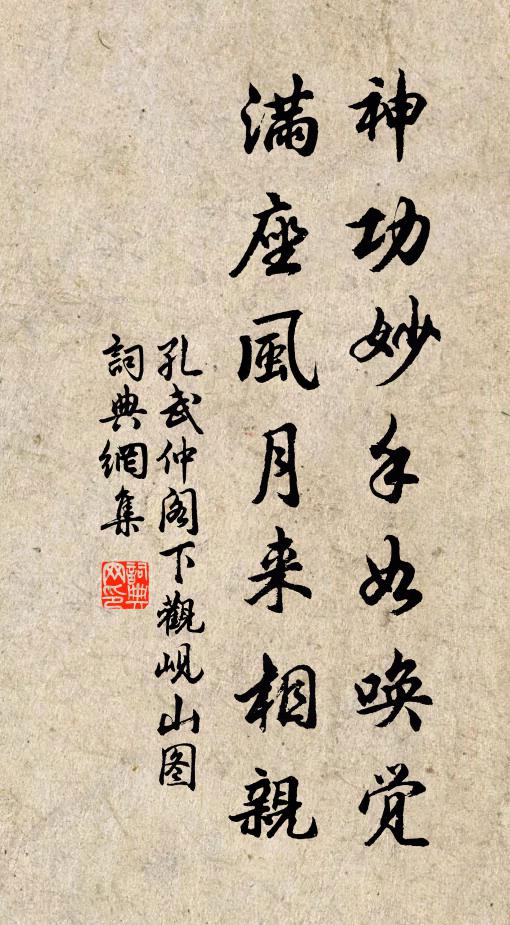 神功妙手如唤觉
满座風月来相親
孔武仲阁下觀岘山图
詞典網集
詞典网印